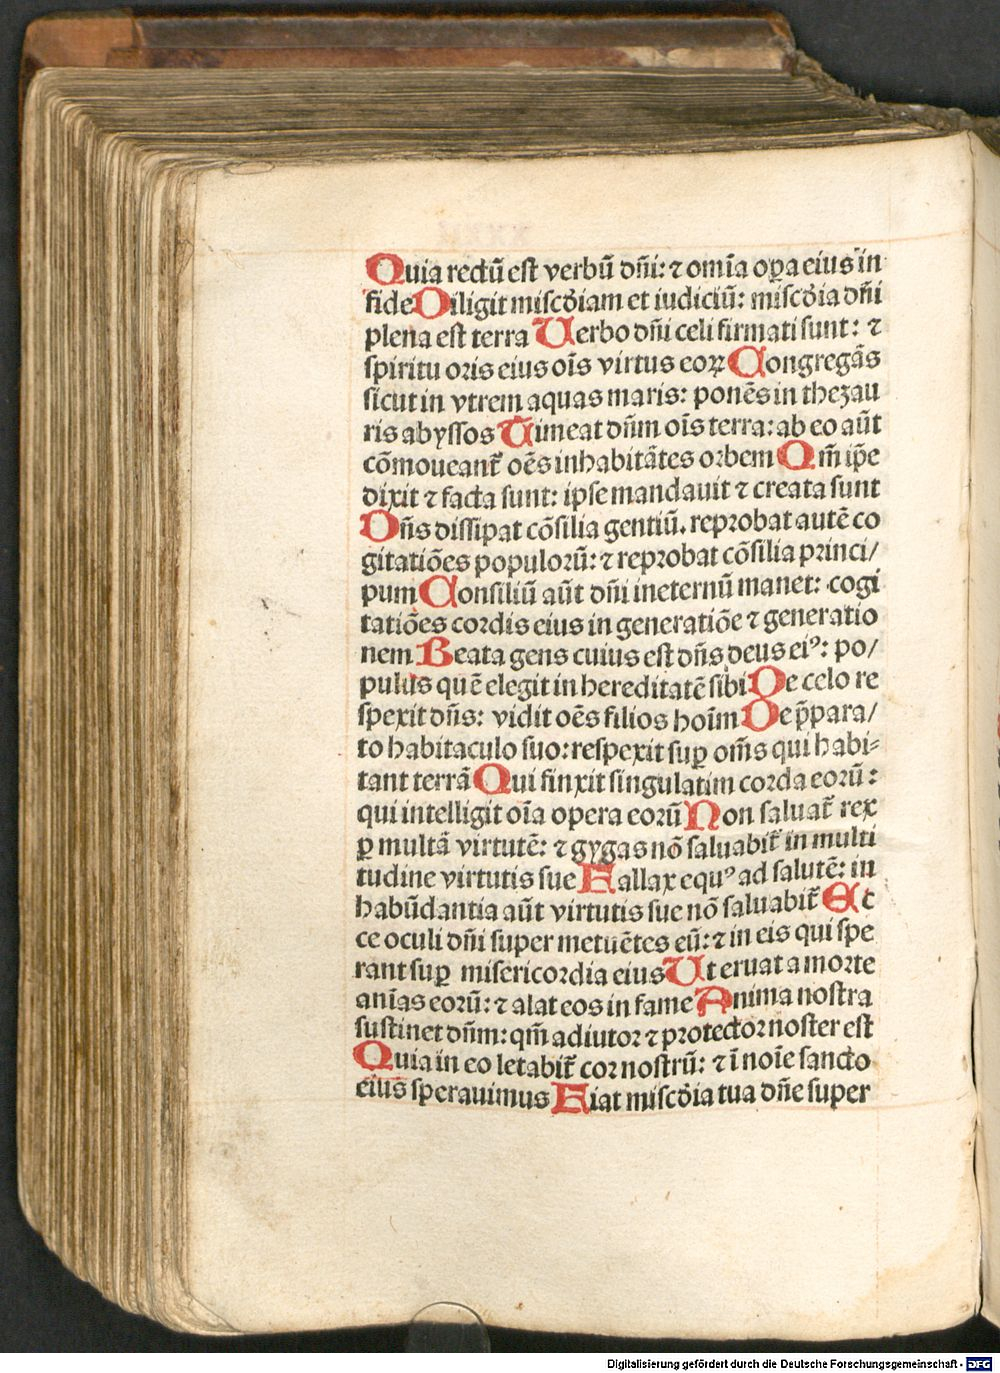 Quia rectū est verbū dn̄i: ⁊ omīa oꝑa eius in
fide Diligit misc̄diam et iudiciū: misc̄dia dn̄i
plena est terra Verbo dn̄i celi firmati sunt: ⁊
spiritu oris eius oīs virtus eoꝝ Congregās
sicut in vtrem aquas maris: ponēs in thezau
ris abyssos Timeat dn̄m oīs terra: ab eo aūt
cōmoueant᷑ oēs inhabitātes orbem Qm̄ ip̄e
dixit ⁊ facta sunt: ipse mandauit ⁊ creata sunt
Dn̄s dissipat cōsilia gentiū. reprobat autē co
gitatiōes populorū: ⁊ reprobat cōsilia princi/
pum Consiliū aūt dn̄i in eternū manet: cogi
tatiōes cordis eius in generatiōe ⁊ generatio
nem Beata gens cuius est dn̄s deus eiꝰ: po/
pulus quē elegit in hereditatē sibi De celo re
spexit dn̄s: vidit oēs filios hoīm De p̄para/
to habitaculo suo: respexit suꝑ om̄s qui habi⸗
tant terrā Qui finxit singulatim corda eorū:
qui intelligit oīa opera eorū Non saluat᷑ rex
ꝑ multā virtutē: ⁊ gygas nō saluabit᷑ in multi
tudine virtutis sue Fallax equꝰ ad salutē: in
habūdantia aūt virtutis sue nō saluabit᷑ Ec
ce oculi dn̄i super metuētes eū: ⁊ in eis qui spe
rant suꝑ misericordia eius Ut eruat a morte
anīas eorū: ⁊ alat eos in fame Anima nostra
sustinet dn̄m: qm̄ adiutor ⁊ protector noster est
Quia in eo letabit᷑ cor nostrū: ⁊ ī noīe sancto
eius sperauimus Fiat misc̄dia tua dn̄e super
Digitalisierung gefördert durch die Deutsche Forschungsgemeinschaft - DFG